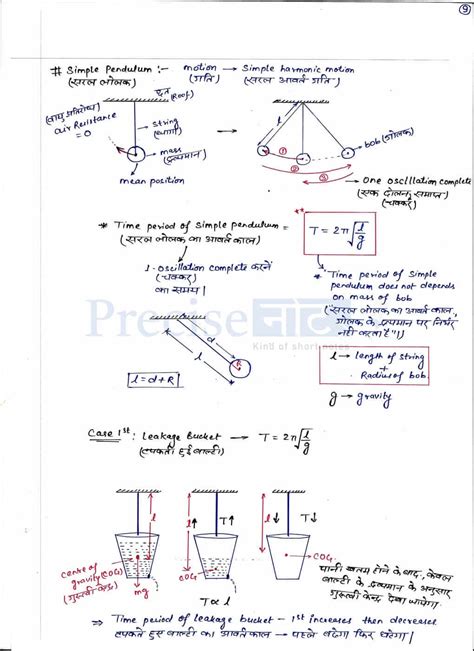 9
# Simple Pendulum :- motion → Simple harmonic motion
(सरल लोलक) (गति) (सरल आवर्त गति)
छत (Roof)
(वायु प्रतिरोध)
air Resistance
= 0
string
(धागा)
mass
(द्रव्यमान)
mean position
l
bob (गोलक)
1
2
3
One oscillation complete
(एक दोलन समाप्त)
(चक्कर)
* Time period of Simple pendulum =
(सरल लोलक का आवर्त काल)
T = 2π√l/g
1-oscillation complete करने
(चक्कर)
का समय |
* Time period of Simple
pendulum does not depends
on mass of bob
(सरल लोलक का आवर्त काल,
गोलक के द्रव्यमान पर निर्भर
नहीं करता है"|)
Precise नोट
Kind of short notes
d
l
l = d + R
l → length of string
+
Radius of bob.
g → gravity
Case 1st : Leakage Bucket → T = 2π√l/g
(टपकती हुई बाल्टी)
l
l ↑ T ↑
l ↓ T ↓
centre of
gravity (COG)
(गुरुत्वी केंद्र)
mg
COG
T ∝ l
COG
पानी खतम होने के बाद, केवल
बाल्टी के द्रव्यमान के अनुसार
गुरुत्वी केन्द्र देखा जायेगा |
⇒ Time period of leakage bucket - 1st increases then decreases
टपकते हुए बाल्टी का आवर्तकाल - पहले बढ़ेगा फिर घटेगा |